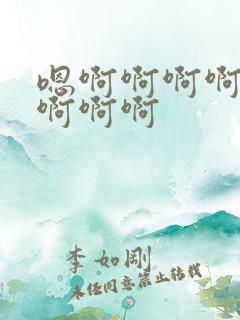 嗯啊啊啊啊
啊啊啊
李如刚
未经同意禁止转载